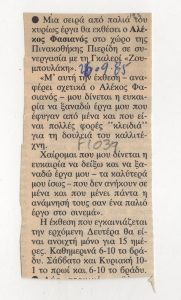 ● Μια σειρά από παλιά του
κυρίως έργα θα εκθέσει ο Αλέ-
κος Φασιανός στο χώρο της
Πινακοθήκης Πιερίδη σε συ-
νεργασία με τη Γκαλερί «Ζου-
μπουλάκη».
20.9.85
«Μ' αυτή την έκθεση – ανα-
φέρει σχετικά ο Αλέκος Φα-
σιανός – μου δίνεται η ευκαι-
ρία να ξαναδώ έργα μου που
έφυγαν από μένα και που εί-
ναι πολλές φορές "κλειδιά"
για τη δουλειά του καλλιτέ-
χνη.
F1039
Χαίρομαι που μου δίνεται η
ευκαιρία να δείξω και να ξα-
ναδώ έργα μου – τα καλύτερά
μου ίσως – που δεν ανήκουν σε
μένα και που μένει πάντα η
ανάμνησή τους σαν ένα παλιό
έργο στο σινεμά».
Η έκθεση που εγκαινιάζεται
την ερχόμενη Δευτέρα θα εί-
ναι ανοιχτή μόνο για 15 ημέ-
ρες. Καθημερινά 6-10 το βρά-
δυ. Σάββατο και Κυριακή 10-
1 το πρωί και 6-10 το βράδυ.